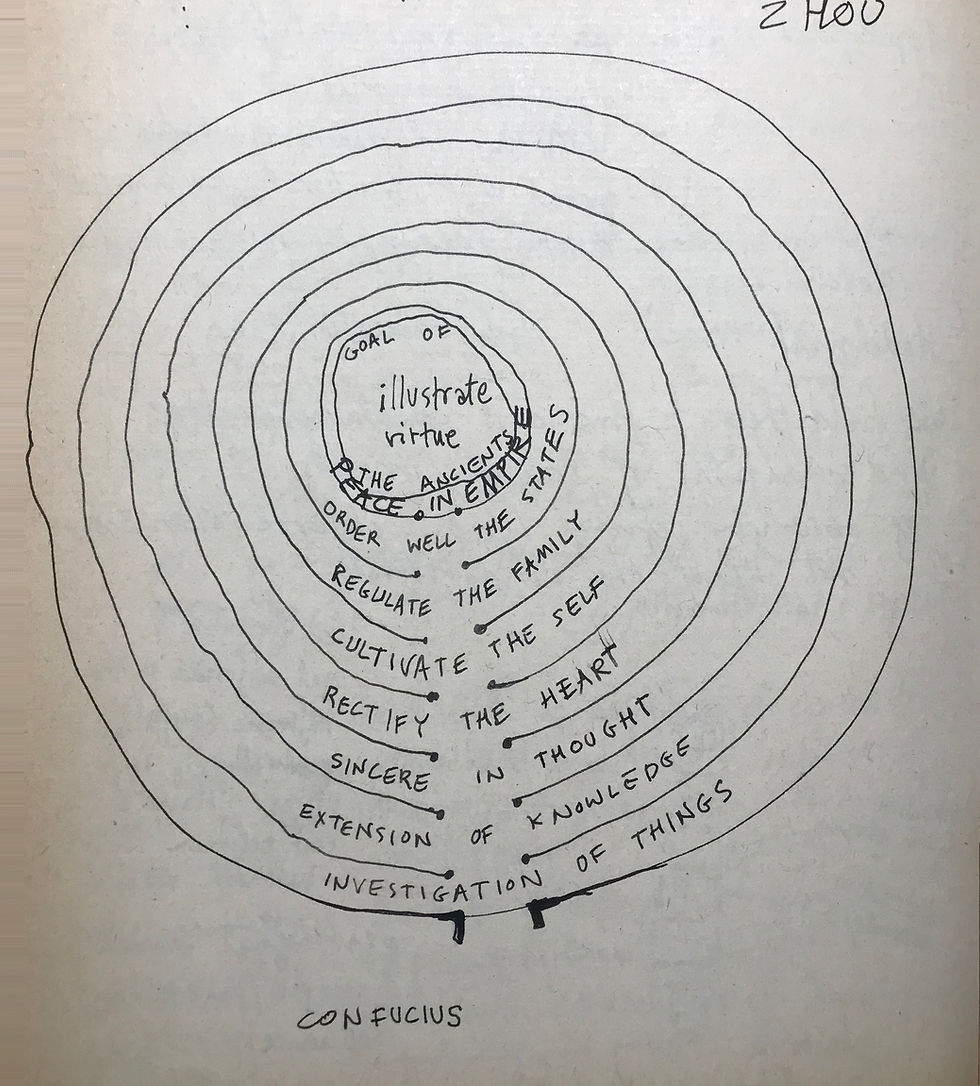 ZHOU
GOAL OF
illustrate
virtue
THE ANCIENTS
PEACE IN EMPIRE
ORDER WELL THE STATES
REGULATE THE FAMILY
CULTIVATE THE SELF
RECTIFY THE HEART
SINCERE IN THOUGHT
EXTENSION OF KNOWLEDGE
INVESTIGATION OF THINGS
CONFUCIUS